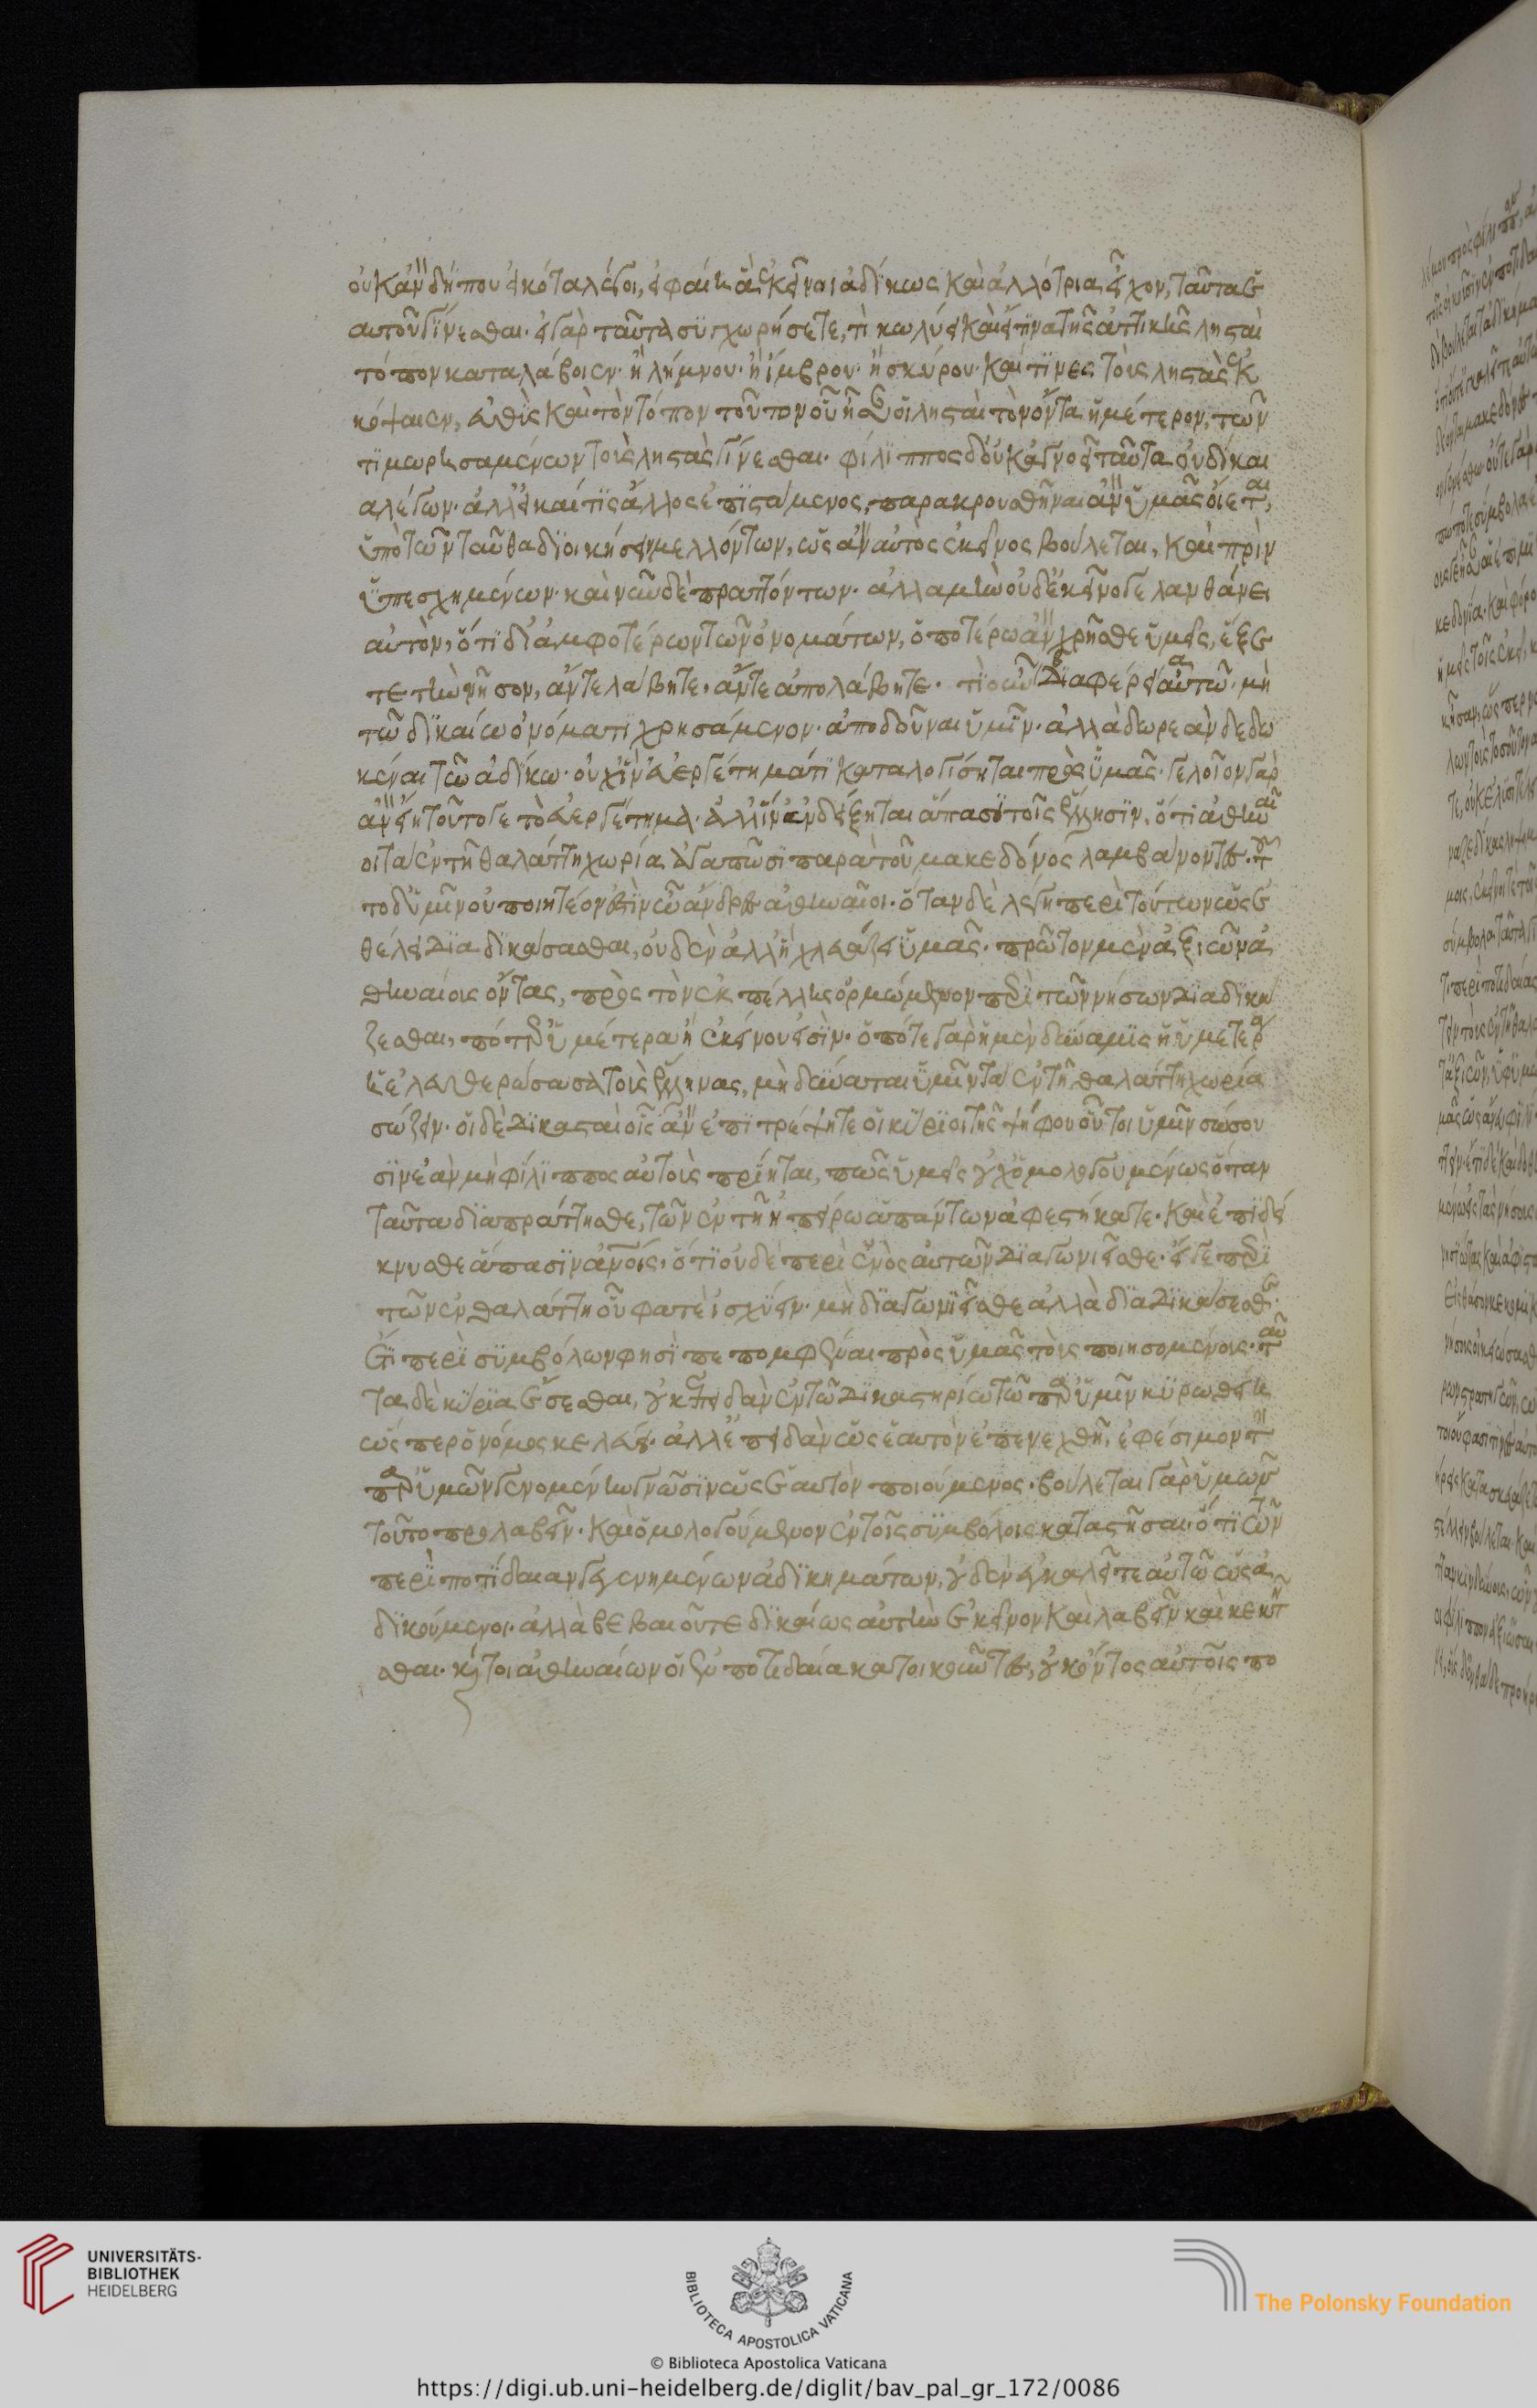 οὐκ ἂν δήπου εἰκότα λέγοι, εἰ φαίη ἃ ἐκεῖνοι ἀδίκως καὶ ἀλλότρια εἶχον, ταῦτα ἑ
αυτοῦ γίνεσθαι· εἰ γὰρ ταῦτα συγχωρήσετε, τί κωλύει καὶ εἴ τινα τῆς ἀττικῆς λησταὶ
τόπον καταλάβοιεν· ἢ λήμνου· ἢ ἴμβρου· ἢ σκύρου· καί τινες τοὺς ληστὰς ἐκ
κόψαιεν, εὐθὺς καὶ τὸν τόπον τοῦτον οὗ ἦσαν οἱ λησταὶ τὸν ὄντα ἡμέτερον, τῶν
τιμωρησαμένων τοὺς ληστὰς γίνεσθαι· φίλιππος δ' οὐκ ἀγνοεῖ ταῦτα οὐ δίκαι
α λέγων· ἀλλ' εἰ καί τις ἄλλος ἐπιστάμενος, παρακρουσθῆναι ἂν ὑμᾶς οἴεται,
ὑπὸ τῶν ταῦθα διοικήσειν μελλόντων, ὡς ἂν αὐτὸς ἐκεῖνος βούλεται, καὶ πρὶν
ὑπεσχημένων· καὶ νῦν δὲ πραττόντων· ἀλλα μὴν οὐδ' ἐκεῖνο γε λανθάνει
αὐτὸν, ὅτι δι' ἀμφοτέρων τῶν ὀνομάτων, ὁποτέρω ἂν χρῆσθε ὑμεῖς, ἕξε
τε τὴν νῆσον, ἄν τε λάβητε· ἄν τε ἀπολάβητε· τί οὖν διαφέρει αὐτῶ· μὴ
τῶ δικαίω ὀνόματι χρησάμενον· ἀποδοῦναι ὑμῖν· ἀλλὰ δωρεὰν δεδω
κέναι τῶ ἀδίκω· οὐχ ἵν' εὐεργέτημά τι καταλογίσηται πρὸς ὑμᾶς· γελοῖον γὰρ
ἂν εἴη τοῦτο γε τὸ εὐεργέτημα· ἀλλ' ἵν' ἐνδείξηται ἅπασι τοῖς ἕλλησιν, ὅτι ἀθηναῖ
οι τὰ ἐν τῆ θαλάττη χωρία ἀγαπῶσι παρὰ τοῦ μακεδόνος λαμβάνοντες· τοῦ
το δ' ὑμῖν οὐ ποιητέον ἐστὶν ὦ ἄνδρες ἀθηναῖοι· ὅταν δὲ λέγη περὶ τούτων ὡς ἐ
θέλει διαδικάσασθαι, οὐδὲν ἀλλ' ἢ χλευάζει ὑμᾶς· πρῶτον μὲν ἀξιῶν ἀ
θηναίους ὄντας, πρὸς τὸν ἐκ πέλλης ὁρμώμενον περὶ τῶν νήσων διαδικά
ζεσθαι, πότερ' ὑμέτερα ἢ ἐκείνου εἰσίν· ὁπότε γὰρ ἡ μὲν δύναμις ἡ ὑμετέρα
ἡ ἐλευθερώσασα τοὺς ἕλληνας, μὴ δύναται ὑμῖν τὰ ἐν τῆ θαλάττη χωρία
σώζειν· οἱ δὲ δικασταὶ οἷς ἂν ἐπιτρέψητε οἱ κύριοι τῆς ψήφου οὗτοι ὑμῖν σώσου
σιν ἐὰν μὴ φίλιππος αὐτοὺς πρίηται, πῶς ὑμεῖς οὐχ ὁμολογουμένως ὅταν
ταῦτα διαπράττησθε, τῶν ἐν τῆ ἠπείρω ἁπάντων ἀφεστήκατε· καὶ ἐπιδεί
κνυσθε ἅπασιν ἀνοις, ὅτι οὐδὲ περὶ ἑνὸς αὐτῶν διαγωνιεῖσθε· εἴ γε περὶ
τῶν ἐν θαλάττη οὗ φατὲ ἰσχύειν· μὴ διαγωνιεῖσθε ἀλλὰ διαδικάσεσθε·
ἔτι περὶ συμβόλων φησὶ πεπομφέναι πρὸς ὑμᾶς τοὺς ποιησομένους· ταῦ
τα δὲ κύρια ἔσεσθαι, οὐκ ἐπειδὰν ἐν τῶ δικαστηρίω τῶ παρ' ὑμῖν κυρωθείη
ὥσπερ ὁ νόμος κελεύει· ἀλλ' ἐπειδὰν ὡς ἑαυτὸν ἐπενεχθῆ, ἐφέσιμον τὴν
παρ' ὑμῶν γενομένην γνῶσιν ὡς ἑαυτὸν ποιούμενος· βούλεται γὰρ ὑμῶν
τοῦτο προλαβεῖν· καὶ ὁμολογούμενον ἐν τοῖς συμβόλοις καταστῆσαι· ὅτι τῶν
περὶ ποτίδαιαν γεγενημένων ἀδικημάτων, οὐδὲν ἐγκαλεῖτε αὐτῶ ὡς ἀ
δικούμενοι· ἀλλὰ βεβαιοῦτε δικαίως αὐτὴν ἐκεῖνον καὶ λαβεῖν καὶ κεκτῆ
σθαι· καίτοι ἀθηναίων οἱ ἐν ποτιδαία κατοικοῦντες, οὐκ ὄντος αὐτοῖς πο
UNIVERSITÄTS-
BIBLIOTHEK
HEIDELBERG
BIBLIOTECA APOSTOLICA VATICANA
The Polonsky Foundation
© Biblioteca Apostolica Vaticana
https://digi.ub.uni-heidelberg.de/diglit/bav_pal_gr_172/0086